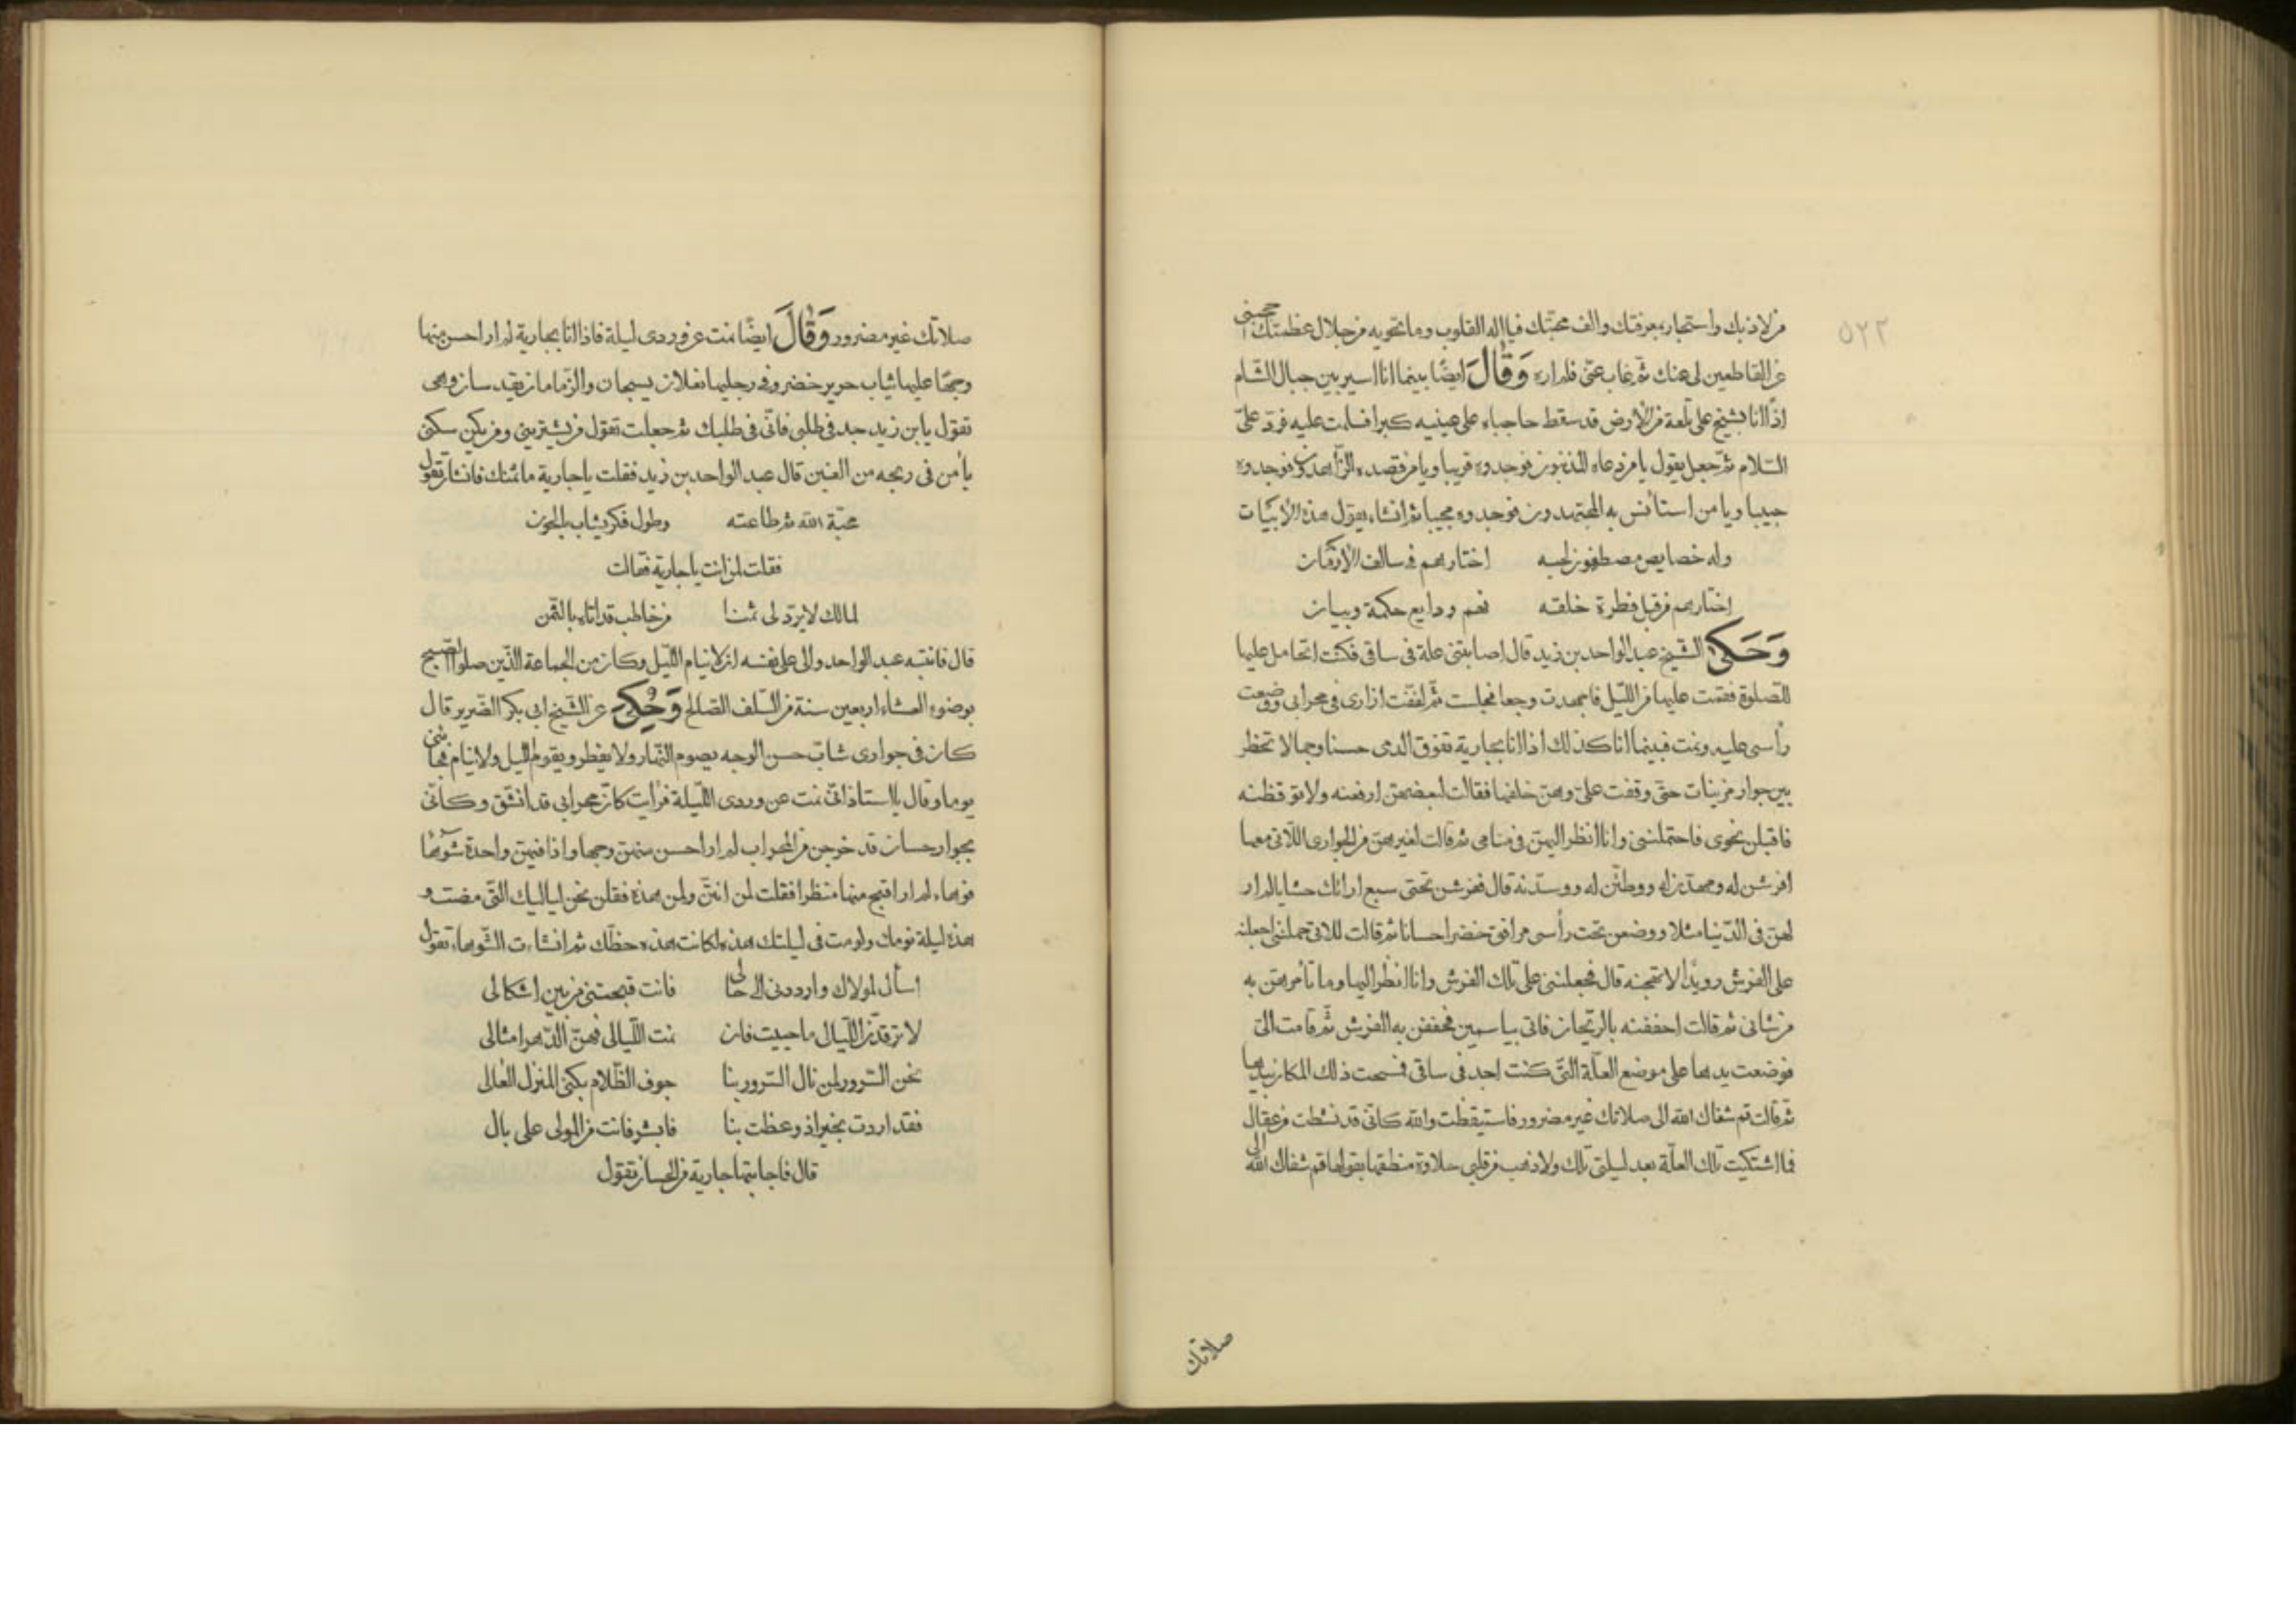 ٥٢٢
من لاذ بك واستجار بمعرفتك والف محبتك فيا اله القلوب وما تحويه من جلال عظمتك احجبنى
عن القاطعين لى عنك ثم غاب عنى فلم اره وَقَالَ ايضًا بينما انا اسير بين جبال الشام
اذًا انا بشيخ على تلعة من الأرض قد سقط حاجباه على عينيه كبرا فسلمت عليه فرد علىّ
السّلام ثم جعل يقول يا من دعاه المذنبون فوجدوه قريبا ويا من قصده الزاهدون فوجدوه
حبيبا ويا من استأنس به المجتهدون فوجدوه مجيبا ثم انشاء يقول هذه الأبيات
وله خصايص مصطفون لحبه اختارهم فى سالف الأزمان
اختارهم من قبل فطرة خلقه فهم ودايع حكمة وبيان
وَحَكَى الشيخ عبد الواحد بن زيد قال اصابتنى علة فى ساقى فكنت اتحامل عليها
للصلوة فقمت عليها من الليل فاجهدت وجعا فجلست ثم لففت ازارى فى محرابى ووضعت
رأسى عليه ونمت فبينما انا كذلك اذا انا بجارية تفوق الدمى حسنا وجمالا تخطر
بين جوار مزينات حتى وقفت علىّ وهن خلفها فقالت لبعضهن ارفعنه ولا توقظنه
فاقبلن نحوى فاحتملننى وانا انظر اليهن فى منامى ثم قالت لغيرهن من الجوارى اللاتى معها
افرشن له ومهدن له ووطئن له ووسدنه قال ففرشن تحتى سبع ارائك حشايا لم ار
لهن فى الدنيا مثلا ووضعن تحت رأسى مرافق خضرا حسانا ثم قالت للاتى حملننى اجعلنه
على الفرش رويدًا لا تهجنه قال فجعلننى على تلك الفرش وانا انظر اليها وما تأمرهن به
من شانى ثم قالت احففنه بالريحان فاتى بياسمين فحففن به الفرش ثم قامت الىّ
فوضعت يدها على موضع العلّة التى كنت اجد فى ساقى فمسحت ذلك المكان بيدها
ثم قالت قم شفاك الله الى صلاتك غير مضرور فاستيقظت والله كانى قد نشطت من عقال
فما اشتكيت تلك العلّة بعد ليلتى تلك ولا ذهب من قلبى حلاوة منطقها بقولها قم شفاك الله الى
صلاتك
صلاتك غير مضرور وَقَالَ ايضًا نمت عن وردى ليلة فاذا انا بجارية لم ار احسن منها
وجهًا عليها ثياب حرير خضر وفى رجليها نعلان يسبحان والزمامان يقدسان وهى
تقول يا بن زيد جد فى طلبى فانّى فى طلبك ثم جعلت تقول من يشترينى ومن يكن سكنى
يأمن فى ربحه من الغبن قال عبد الواحد بن زيد فقلت يا جارية ما ثمنك فانشأت تقول
محبّة الله ثم طاعته وطول فكر يشاب بالحزن
فقلت لمن انت يا جارية فقالت
لمالك لا يرد لى ثمنا من خاطب قد اتاه بالثمن
قال فانتبه عبد الواحد والى على نفسه ان لا ينام الليل وكان من الجماعة الذين صلوا الصبح
بوضوء العشاء اربعين سنة من السلف الصالح وَحُكِىَ عن الشيخ ابى بكر الضرير قال
كان فى جوارى شابّ حسن الوجه يصوم النهار ولا يفطر ويقوم الليل ولا ينام فجاءنى
يوما وقال يا استاذ انى نمت عن وردى الليلة فرأيت كأن محرابى قد انشق وكأنى
بجوار حسان قد خرجن من المحراب لم ار احسن منهن وجها واذا فيهن واحدة شوهاء
فوهاء لم ار اقبح منها منظرا فقلت لمن انتن ولمن هذه فقلن نحن لياليك التى مضت و
هذه ليلة نومك ولو مت فى ليلتك هذه لكانت هذه حظّك ثم انشاءت الشوهاء تقول
اسأل لمولاك وارددنى الى حالى فانت قبحتنى من بين اشكالى
لا ترقدن الليالى ما حييت فان نمت الليالى فهن الدهر امثالى
نحن السرور لمن نال السرور بنا جوف الظلام بكن المنزل العالى
فقد اردت بخير اذ وعظت بنا فابشر فانت من المولى على بال
قال فاجابتها جارية من الحسان تقول